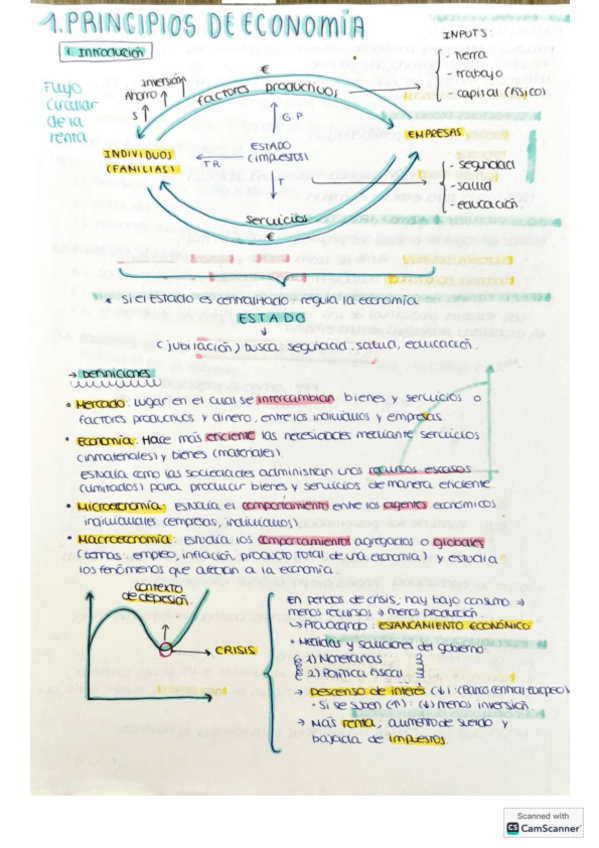 1. PRINCIPIOS DE ECONOMÍA
1. INTRODUCCIÓN
Flujo
circular
de la
renta
S
Ahorro
inversión
€
factores productivos
INPUTS:
- tierra
- trabajo
- capital (físico)
G.P
INDIVIDUOS
(FAMILIAS)
TR
ESTADO
(impuestos)
EMPRESAS
T
- seguridad
- salud
- educación.
servicios
€
* Si el Estado es centralizado - regula la economía
ESTADO
(jubilación) busca seguridad, salud, educación.
→ Definiciones
• Mercado: lugar en el cual se intercambian bienes y servicios o
factores productivos y dinero, entre los individuos y empresas.
• Economía: Hace más eficiente las necesidades mediante servicios
(inmateriales) y bienes (materiales).
Estudia como las sociedades administran unos recursos escasos
(limitados) para producir bienes y servicios de manera eficiente.
• Microeconomía: Estudia el comportamiento entre los agentes económicos
individuales (empresas, individuos).
• Macroeconomía: Estudia los comportamientos agregados o globales
(temas: empleo, inflación, producto total de una economía) y estudia
los fenómenos que afectan a la economía.
CONTEXTO
de depresión.
CRISIS
En periodos de crisis, hay bajo consumo →
menos recursos → menos producción.
↳ Provocando: ESTANCAMIENTO ECONÓMICO
• Medidas y soluciones del gobierno:
1) Monetarias
2) Política fiscal
→ Descenso de interés (↓): (Banco Central Europeo)
• Si se suben (↑): (↓) menos inversión.
→ Más renta; aumento de sueldo y
bajada de impuestos.
Scanned with
CS CamScanner